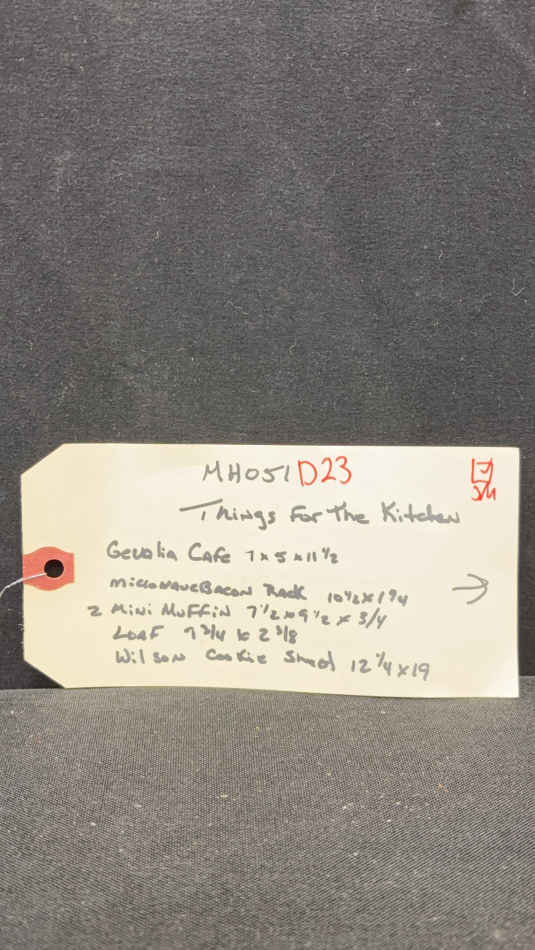 MH051 D23
Things For The Kitchen
Gevalia Cafe 7 x 5 x 11 1/2
Microwave Bacon Rack 10 1/2 x 1 3/4
2 Mini Muffin 7 1/2 x 9 1/2 x 3/4
Loaf 9 3/4 x 2 3/8
Wilson Cookie 12 1/4 x 19